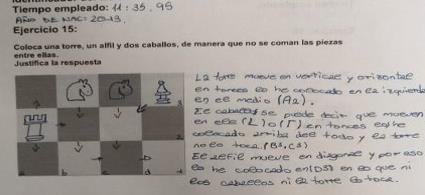 Tiempo empleado: 11:35,95
AÑO DE NAC: 2013.
Ejercicio 15:
Coloca una torre, un alfil y dos caballos, de manera que no se coman las piezas
entre ellas.
Justifica la respuesta
La torre mueve en vertical y orizontal
en tonces la he colocado en la izquierda
en el medio (A2).
El caballo se puede decir que mueven
en ele (L) o (Γ) en tonces los he
colocado arriba del todo y la torre
no lo toca. (B3, C3)
El alfil mueve en diagonal y por eso
lo he colocado en (D3) en lo que ni
los caballos ni la torre lo toca.
3
2
a b c d 1